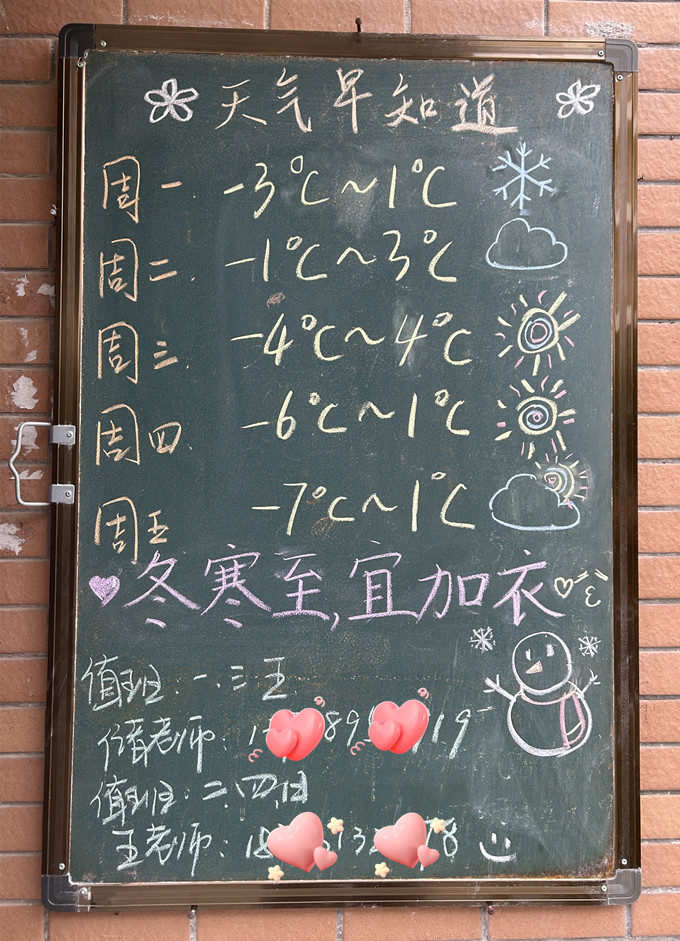 天气早知道
周一. -3℃~1℃
周二. -1℃~3℃
周三. -4℃~4℃
周四. -6℃~1℃
周五 -7℃~1℃
冬寒至,宜加衣
值班:一.三五
老师:1 89 19
值班:二.四.日
王老师:18 13 78